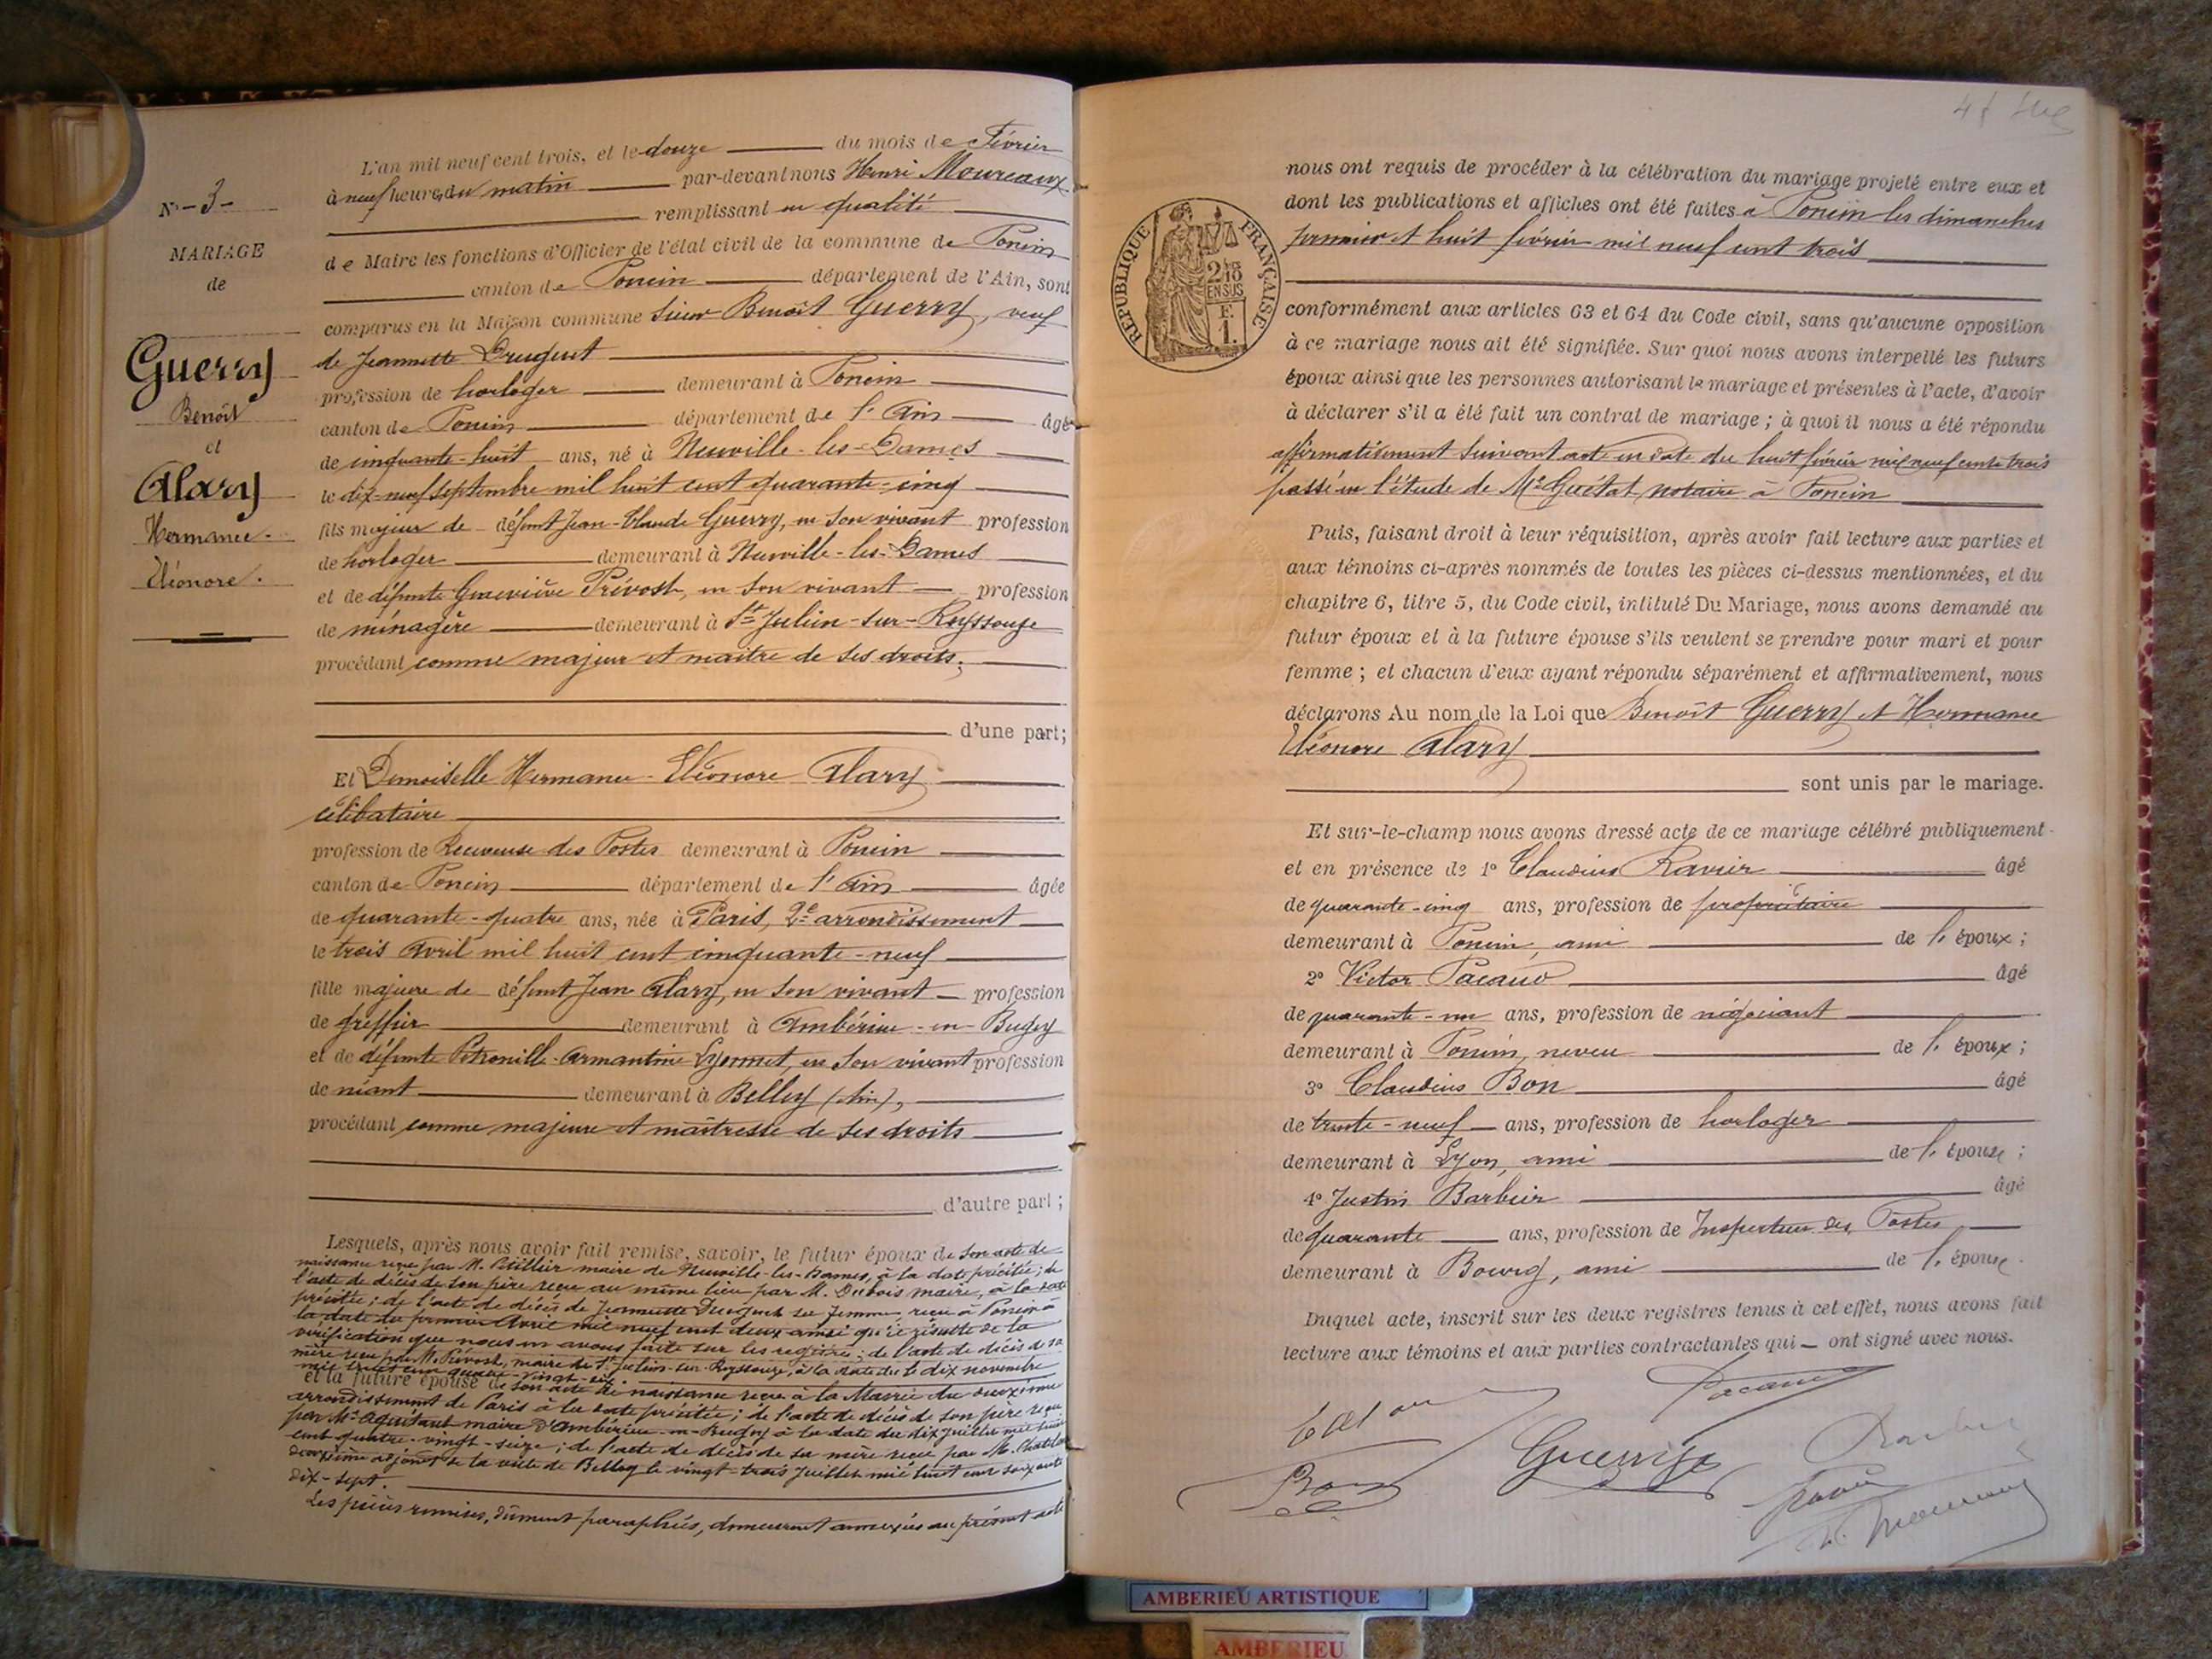 N° - 3 -
MARIAGE
de
Guerry
Benoît
et
Alary
Hermance
Eléonore.
L'an mil neuf cent trois, et le douze du mois de Février
à neuf heures du matin par-devant nous Henri Moureaux
remplissant en qualité
de Maire les fonctions d'Officier de l'état civil de la commune de Poncin
canton de Poncin département de l'Ain, sont
comparus en la Maison commune sieur Benoît Guerry, veuf
de Jeannette
profession de horloger demeurant à Poncin
canton de Poncin département de l'Ain âgé
de cinquante-huit ans, né à Neuville-les-Dames
le dix-neuf septembre mil huit cent quarante-cinq
fils majeur de défunt Jean-Claude Guerry, en son vivant profession
de horloger demeurant à Neuville-les-Dames
et de défunte Geneviève Prévost, en son vivant profession
de ménagère demeurant à St Julien-sur-Reyssouze
procédant comme majeur et maître de ses droits;
d'une part;
Et Demoiselle Hermance-Eléonore Alary
célibataire
profession de Receveuse des Postes demeurant à Poncin
canton de Poncin département de l'Ain âgée
de quarante-quatre ans, née à Paris, 2e arrondissement
le trois Avril mil huit cent cinquante-neuf
fille majeure de défunt Jean Alary, en son vivant profession
de greffier demeurant à Ambérieu-en-Bugey
et de défunte Pétronille-Armantine Lyonnet, en son vivant profession
de néant demeurant à Belley (Ain),
procédant comme majeure et maîtresse de ses droits
d'autre part;
Lesquels, après nous avoir fait remise, savoir, le futur époux de son acte de
naissance reçu par M. maire de Neuville-les-Dames, à la date précitée; de
l'acte de décès de son père reçu au même lieu par M. Dubois maire, à la date
précitée; de l'acte de décès de Jeannette sa femme, reçu à Poncin à
la date du premier Avril mil neuf cent deux ainsi qu'il résulte de la
vérification que nous en avons faite sur les registres; de l'acte de décès de sa
mère reçu par M. Prévost, maire de St Julien-sur-Reyssouze, à la date du dix novembre
mil huit cent quatre-vingt-six.
et la future épouse de son acte de naissance reçu à la Mairie du deuxième
arrondissement de Paris à la date précitée; de l'acte de décès de son père reçu
par M. maire d'Ambérieu-en-Bugey à la date du dix juillet mil huit
cent quatre-vingt-seize; de l'acte de décès de sa mère reçu par M.
deuxième adjoint de la ville de Belley le vingt-trois juillet mil huit cent soixante
dix-sept.
Les pièces remises, dûment paraphées, demeurent annexées au présent acte
RÉPUBLIQUE FRANÇAISE
2/10
EN SUS
E.
1.
nous ont requis de procéder à la célébration du mariage projeté entre eux et
dont les publications et affiches ont été faites à Poncin les dimanches
premier et huit février mil neuf cent trois
conformément aux articles 63 et 64 du Code civil, sans qu'aucune opposition
à ce mariage nous ait été signifiée. Sur quoi nous avons interpellé les futurs
époux ainsi que les personnes autorisant le mariage et présentes à l'acte, d'avoir
à déclarer s'il a été fait un contrat de mariage; à quoi il nous a été répondu
affirmativement suivant acte en date du huit février mil neuf cent trois
passé en l'étude de Me Guétat, notaire à Poncin
Puis, faisant droit à leur réquisition, après avoir fait lecture aux parties et
aux témoins ci-après nommés de toutes les pièces ci-dessus mentionnées, et du
chapitre 6, titre 5, du Code civil, intitulé Du Mariage, nous avons demandé au
futur époux et à la future épouse s'ils veulent se prendre pour mari et pour
femme; et chacun d'eux ayant répondu séparément et affirmativement, nous
déclarons Au nom de la Loi que Benoît Guerry et Hermance
Eléonore Alary
sont unis par le mariage.
Et sur-le-champ nous avons dressé acte de ce mariage célébré publiquement
et en présence de 1° Claudius Ravier âgé
de quarante-cinq ans, profession de propriétaire
demeurant à Poncin, ami de l'époux;
2° Victor Pacaud âgé
de quarante-un ans, profession de négociant
demeurant à Poncin, neveu de l'époux;
3° Claudius Bon âgé
de trente-neuf ans, profession de horloger
demeurant à Lyon, ami de l'épouse;
4° Justin Barbier âgé
de quarante ans, profession de Inspecteur des Postes
demeurant à Bourg, ami de l'épouse.
Duquel acte, inscrit sur les deux registres tenus à cet effet, nous avons fait
lecture aux témoins et aux parties contractantes qui ont signé avec nous.
Pacaud
Guerry
Bon
Ravier
H. Moureaux
AMBERIEU ARTISTIQUE
AMBERIEU